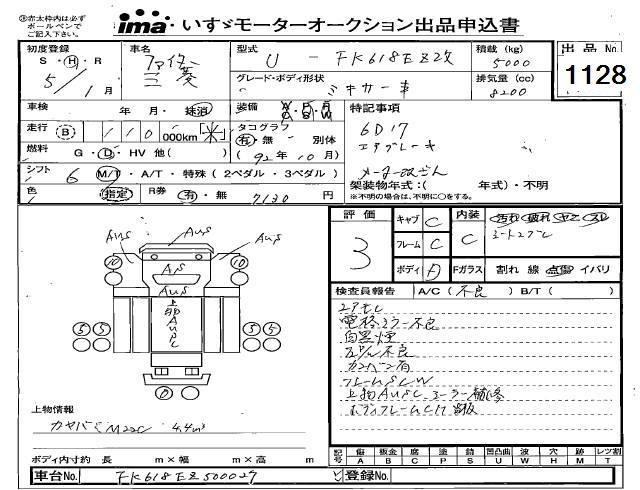 ※赤太枠内は必ず
ボールペンで
ご記入下さい。
ima いすゞモーターオークション出品申込書
初度登録 車名 型式 積載 (kg) 出品No.
S・H・R ファイター U - FK618EZ改 5000
5/1月 三菱 グレード・ボディ形状 排気量 (cc) 1128
ミキサー車 8200
車検 年 月・抹消 装備 特記事項
走行 B 110 000km 米 タコグラフ 6D17
有・無 別体 エアブレーキ
燃料 G・D・HV 他( ) (92年10月)
シフト 6 M/T・A/T・特殊 (2ペダル・3ペダル)
架装物年式:( 年式)・不明
色 指定 R券 有・無 7130 円 ※不明の場合は、不明に○をする。
評価 キャブ C 内装 汚れ 破れ ヤニ スレ
3 フレーム C C
ボディ D Fガラス 割れ 線 点傷 イバリ
検査員報告 A/C (不良) B/T ( )
エアモレ
電格ミラー不良
白黒煙
不良
カンバン有
フレームSCW
上物AUSC 補修
ボディフレームCH
AUS AUS AUS
10 AS 10
AUS
上部AUSC
5 5 5 5
10
上物情報
カヤバ M22C 4.4m³
ボディ内寸約 長 m×幅 m×高 m
記号 傷 板金 腐 塗 錆 凹凸曲 波 穴 跡 レツ割
A B C P S U W H M T
車台No. FK618EZ500027 登録No.